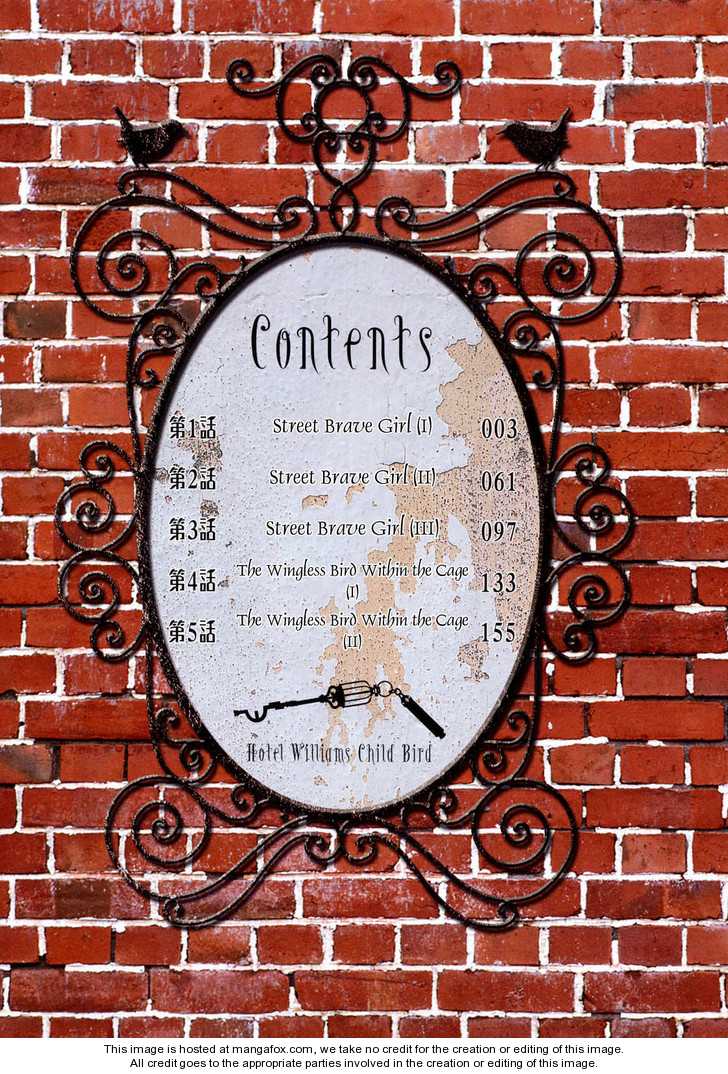 Contents
第1話 Street Brave Girl (I) 003
第2話 Street Brave Girl (II) 061
第3話 Street Brave Girl (III) 097
第4話 The Wingless Bird Within the Cage (I) 133
第5話 The Wingless Bird Within the Cage (II) 155
Hotel Williams Child Bird
This image is hosted at mangafox.com, we take no credit for the creation or editing of this image.
All credit goes to the appropriate parties involved in the creation or editing of this image.